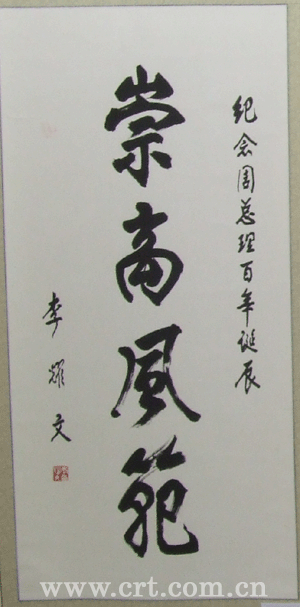 纪念周总理百年诞辰
崇高风范
李耀文
www.crt.com.cn